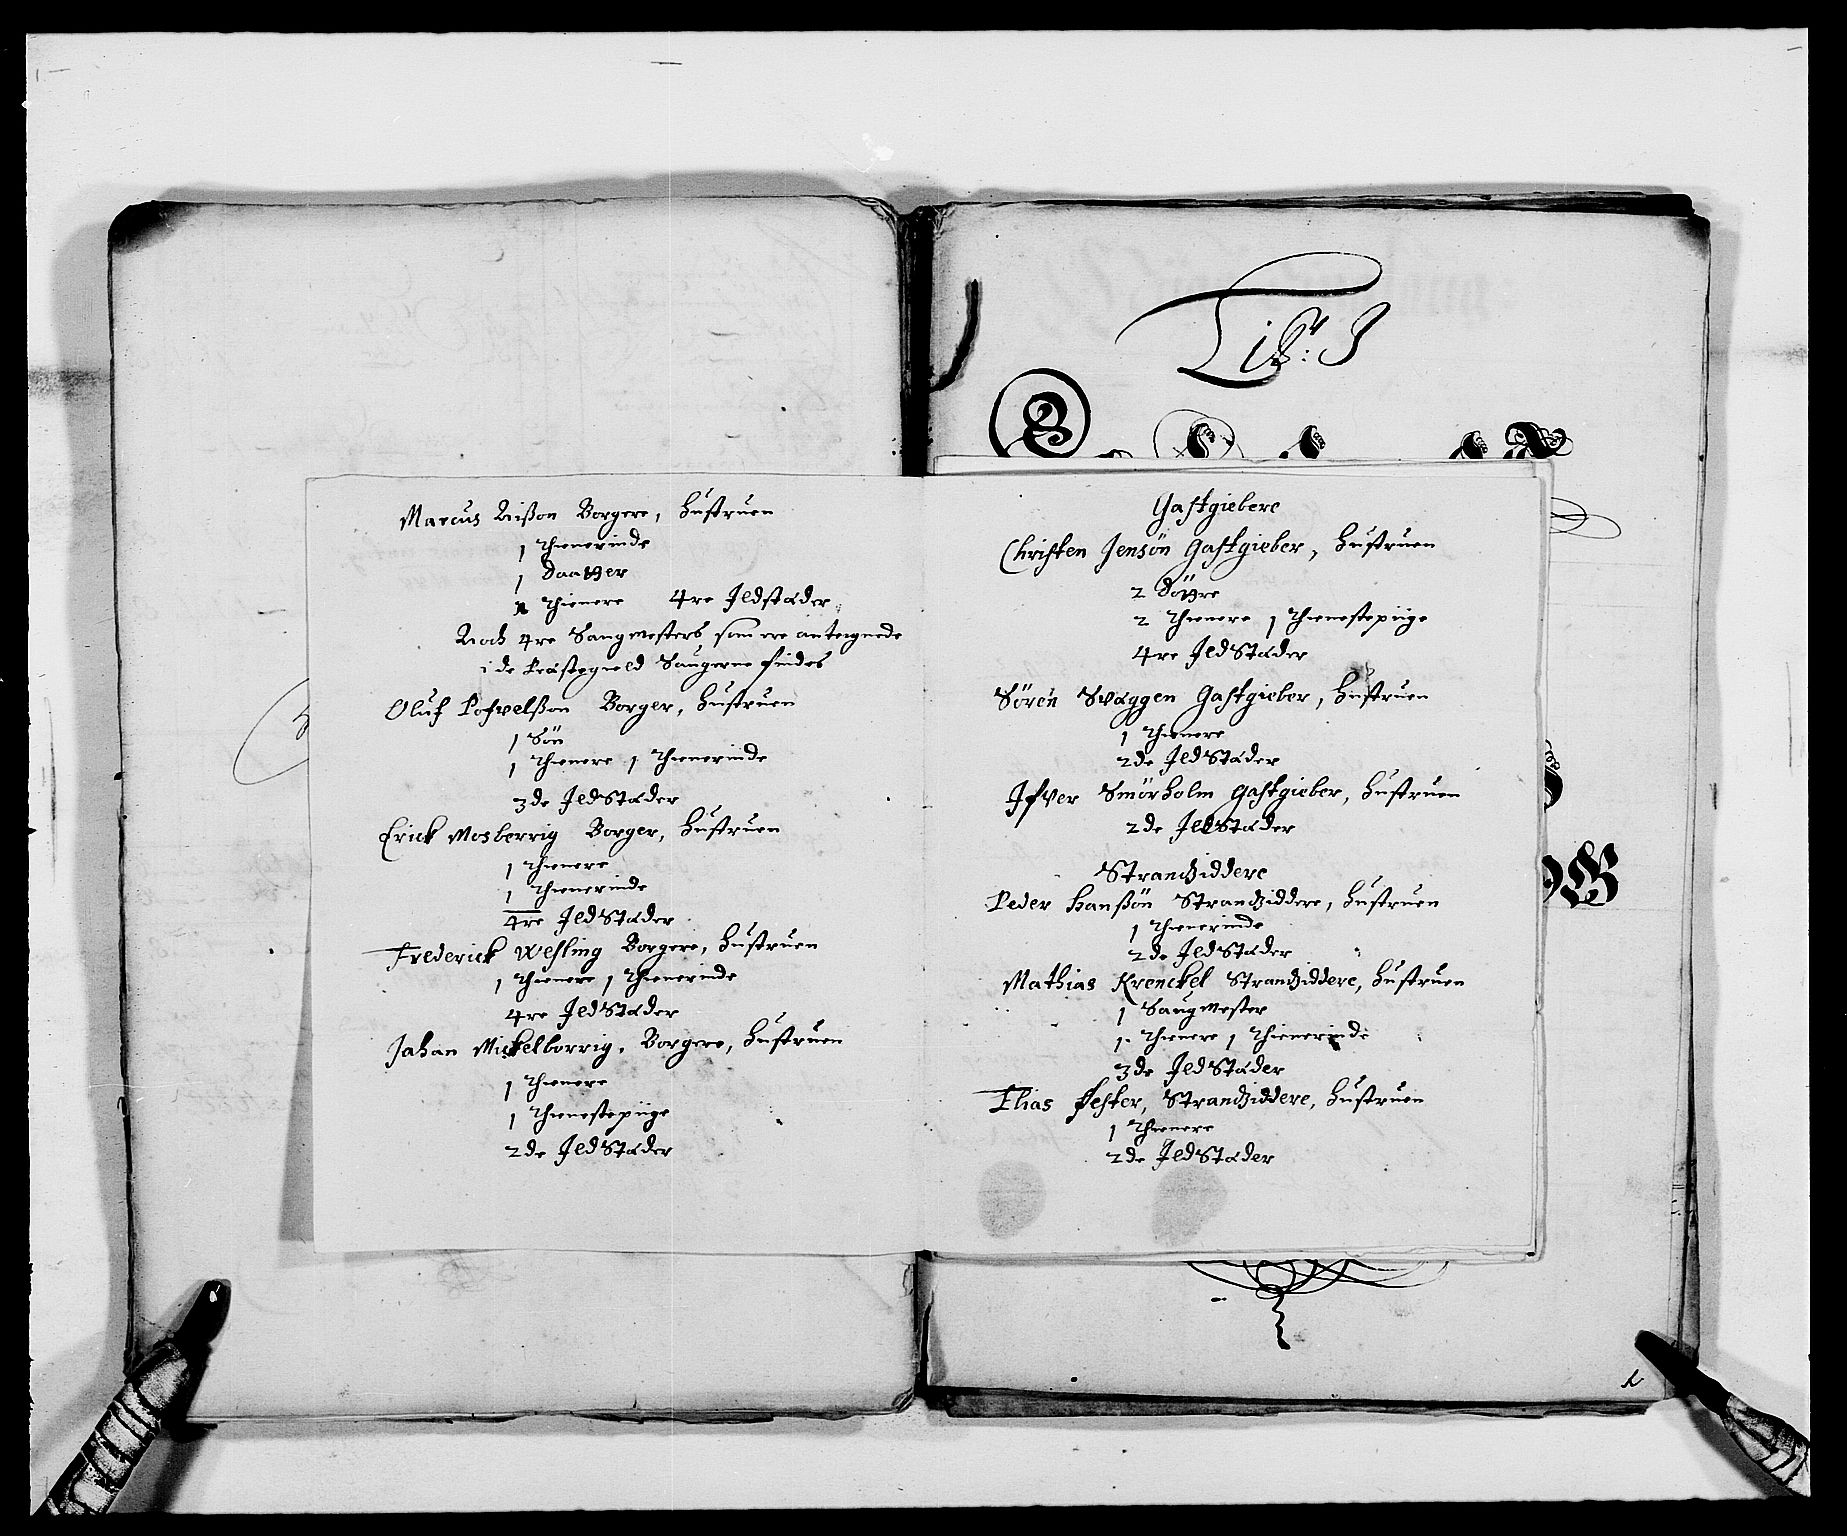 Marcus Nißon Borgere, Hustruen
1 Thienerinde
1 Daatter
Thienere 4re Ildstæder
Noch 4re Saugmesters som ere anteignede
i de Præstegield Saugerne findes
Oluf Pofvelßon Borger, Hustruen
1 Sön
1 Thienere 1 Thienerinde
3de IldStæder
Erick Mosberrig Borger, Hustruen
1 Thienere
1 Thienerinde
4re IldStæder
Frederick Wesling Borgere, Hustruen
1 Thienere 1 Thienerinde
4re IldStæder
Johan Mickelborrig, Borgere, Hustruen
1 Thienere
1 Thienestepiige
2de IldStæder
Lit: J
Gastgiebere
Christen Jensön Gastgieber, Hustruen
2 Döttre
2 Thienere 1 Thienestepiige
4re IldStæder
Sören Svaggen Gastgieber, Hustruen
1 Thienere
2de IldStæder
Ifver Smörholm Gastgieber, Hustruen
2de IldStæder
Strandziddere
Peder Hanßön Strandziddere, Hustruen
1 Thienerinde
2de IldStæder
Mathias Krenckel Strandziddere, Hustruen
1 Saugmester
1 Thienere 1 Thienerinde
3de IldStæder
Elias Fester, Strandziddere, Hustruen
1 Thienere
2de IldStæder